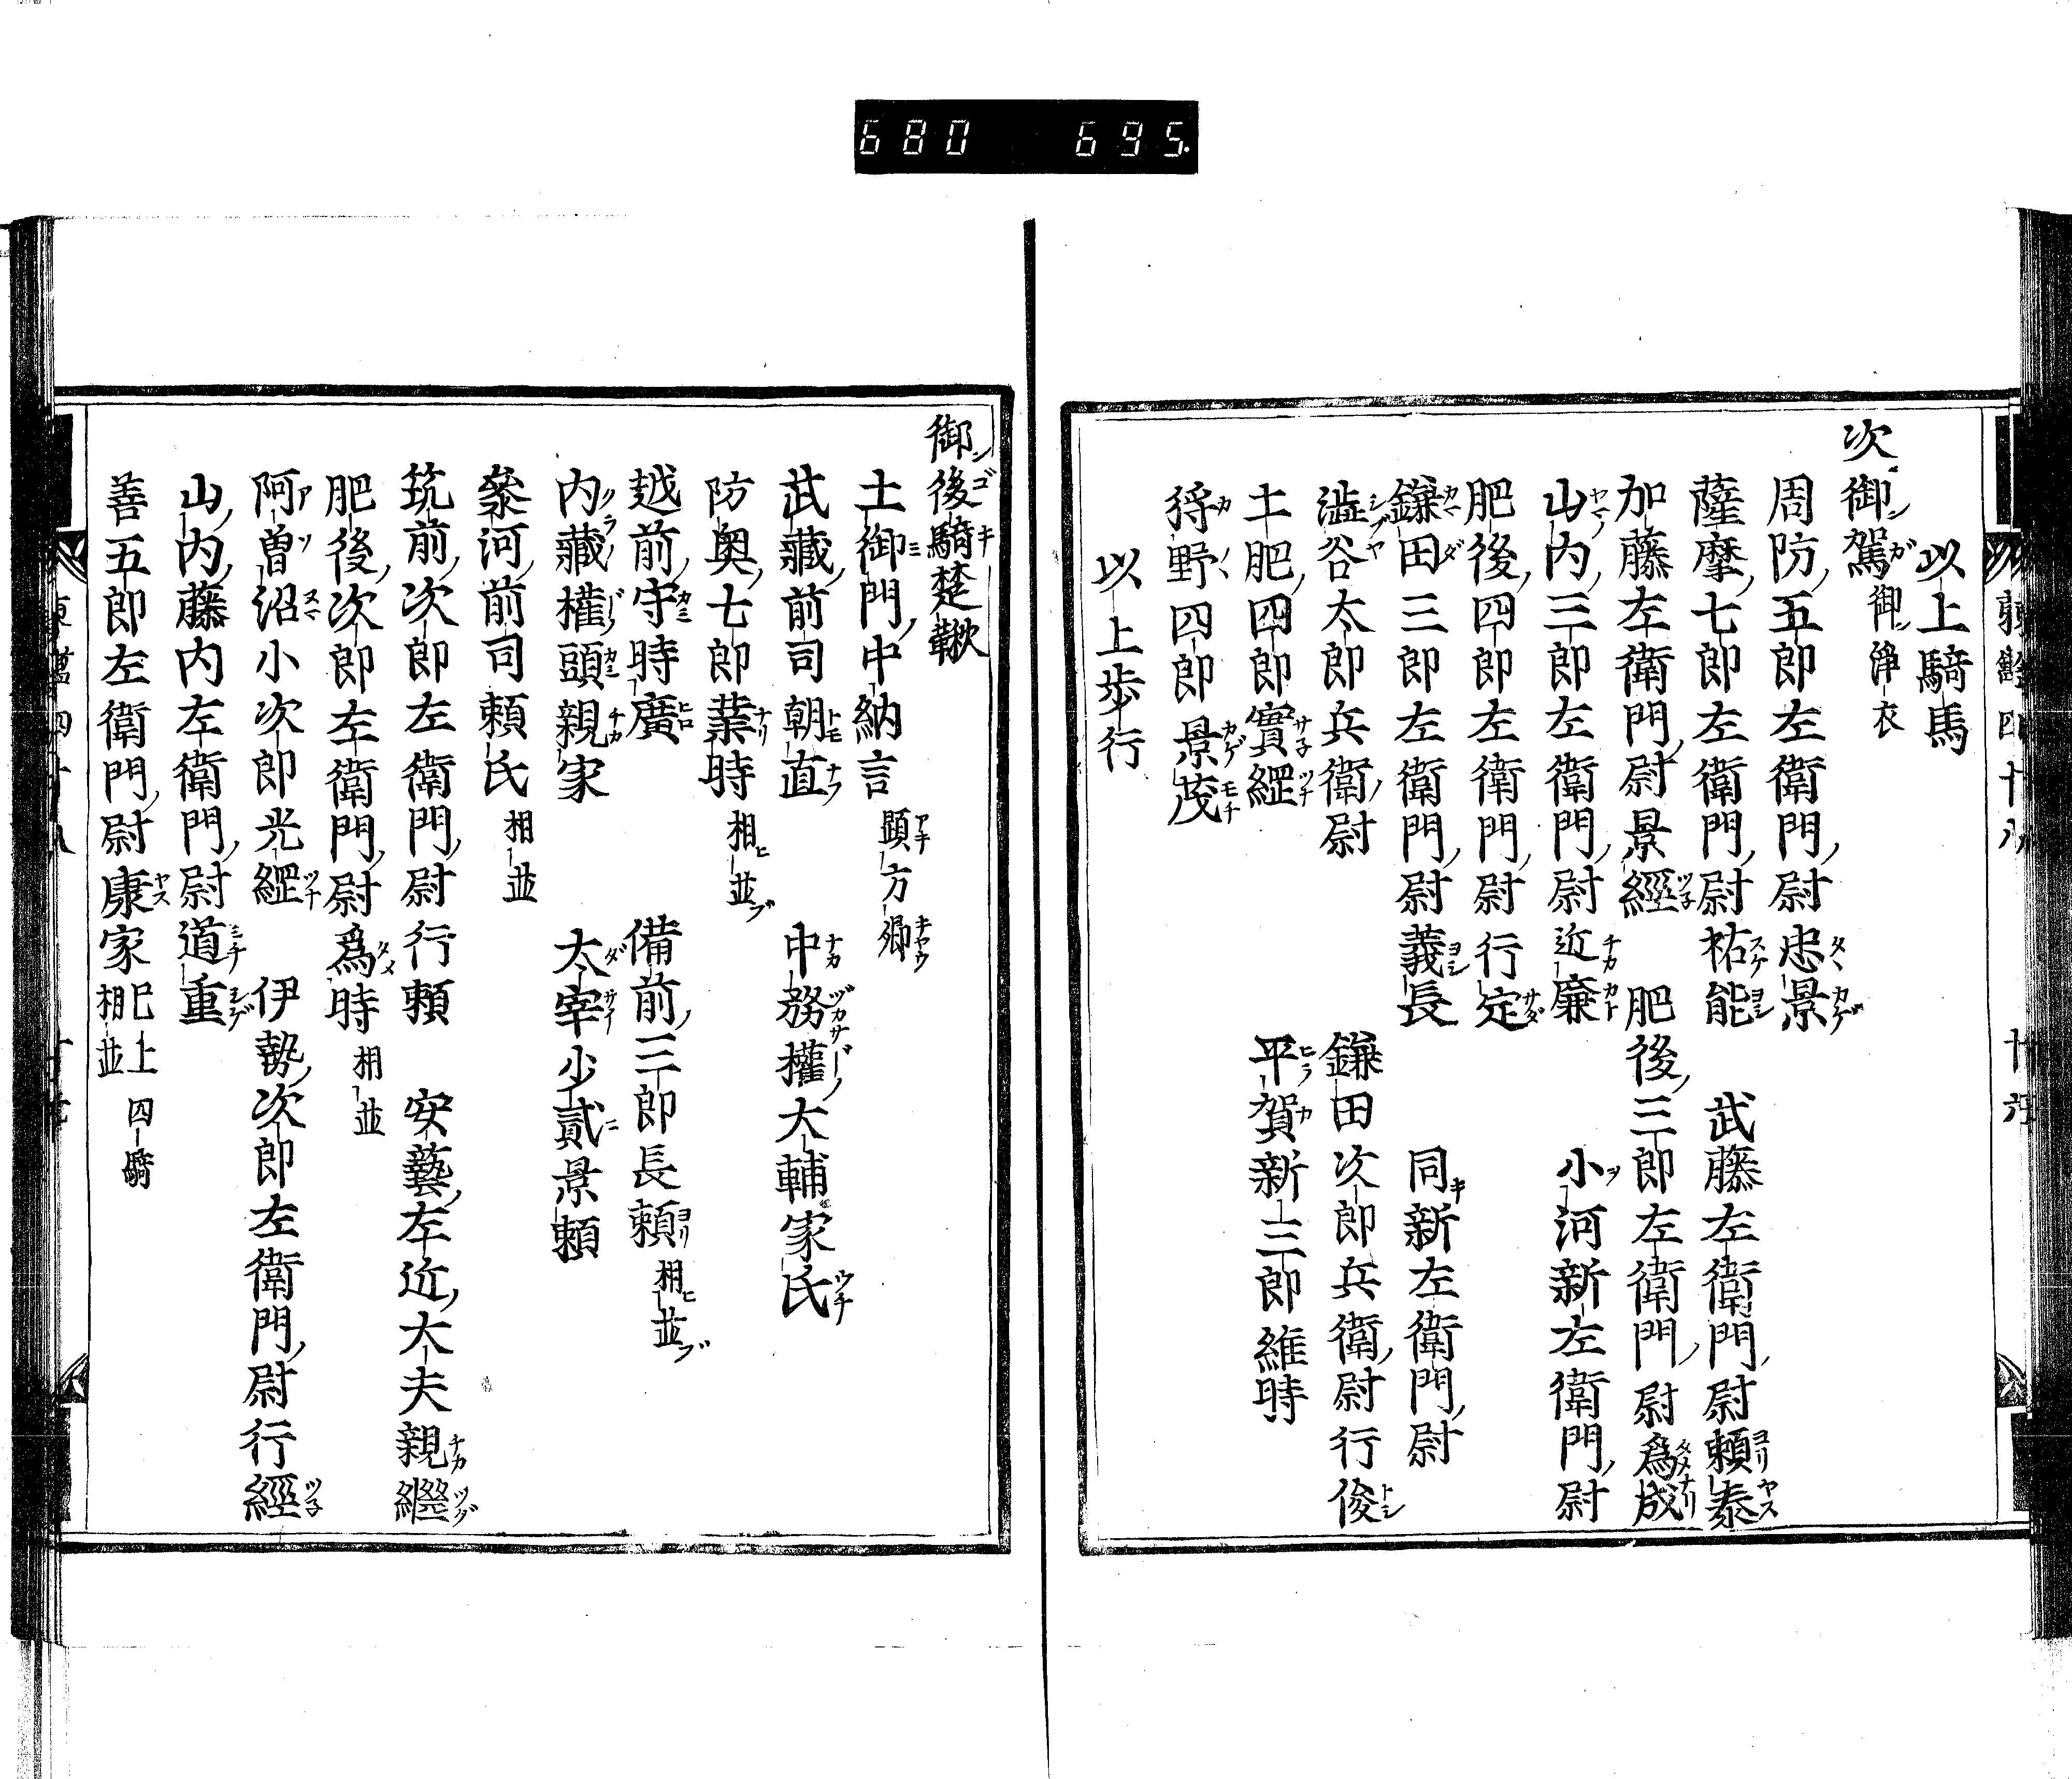 680 695
以上騎馬
次御駕御淨衣
周防五郎左衛門尉忠景
薩摩七郎左衛門尉祐能 武藤左衛門尉頼泰
加藤左衛門尉景經 肥後三郎左衛門尉爲成
山内三郎左衛門尉近廉 小河新左衛門尉
肥後四郎左衛門尉行定
鎌田三郎左衛門尉義長 同新左衛門尉
澁谷太郎兵衛尉 鎌田次郎兵衛尉行俊
土肥四郎實綱 平賀新三郎維時
狩野四郎景茂
以上歩行
御後騎楚鞦
土御門中納言顕方卿
武藏前司朝直 中務權大輔家氏
防奥七郎業時相並
越前守時廣 備前三郎長頼相並
内藏權頭親家 太宰少貳景頼
叅河前司頼氏相並
筑前次郎左衛門尉行頼 安藝左近大夫親繼
肥後次郎左衛門尉爲時相並
阿曽沼小次郎光綱 伊勢次郎左衛門尉行經
山内藤内左衛門尉道重
善五郎左衛門尉康家已上四騎相並